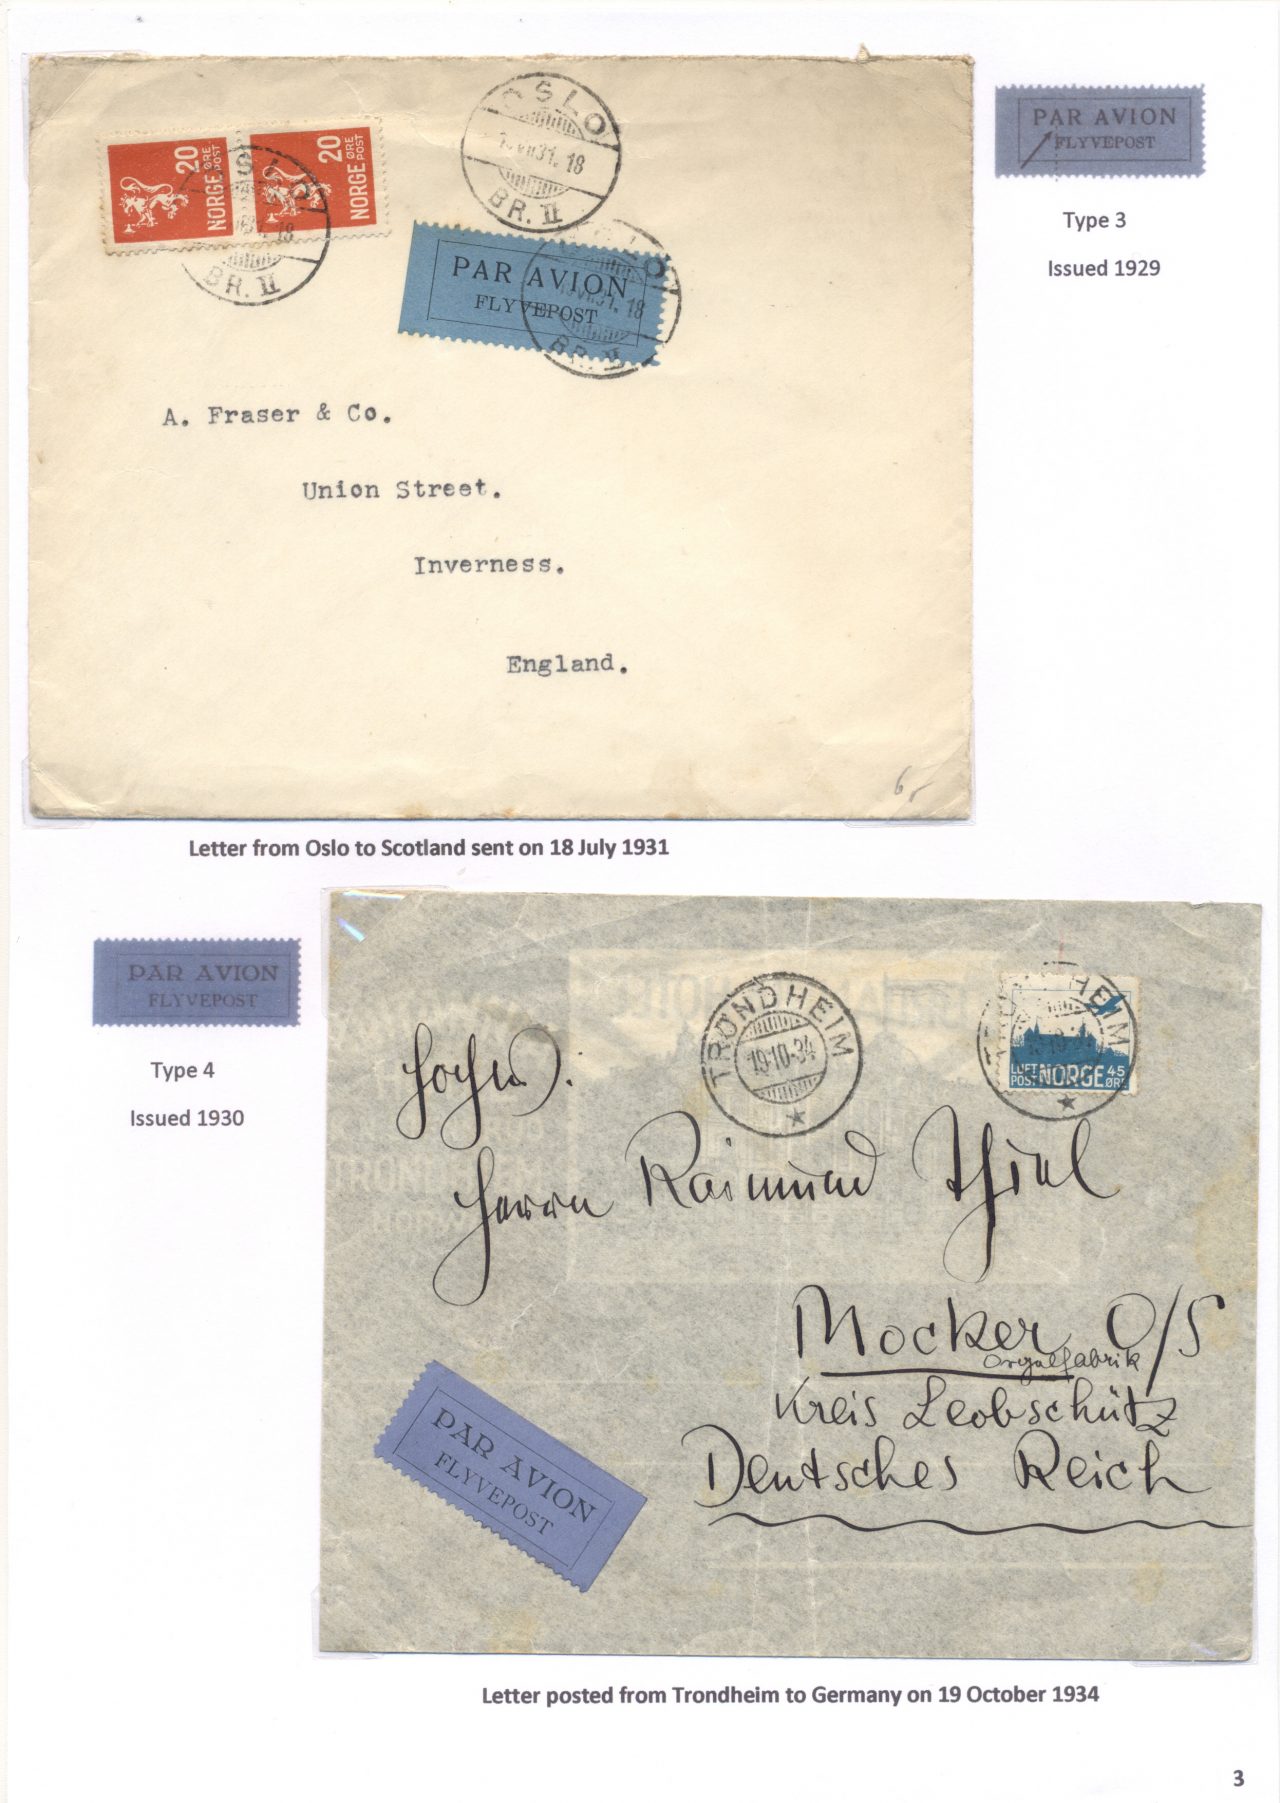 20
ØRE
POST
NORGE
20
ØRE
POST
NORGE
OSLO
VII 31. 18
BR. II
OSLO
18
BR. II
PAR AVION
FLYVEPOST
VII 31. 18
BR. II
A. Fraser & Co.
Union Street.
Inverness.
England.
6
PAR AVION
FLYVEPOST
Type 3
Issued 1929
Letter from Oslo to Scotland sent on 18 July 1931
PAR AVION
FLYVEPOST
Type 4
Issued 1930
TRONDHEIM
19-10-34
TRONDHEIM
19-10-34
LUFT
POST NORGE 45
ØRE
TRONDHEIM
Herrn Raimund Thiel
Mocker O/S
Orgelfabrik
Kreis Leobschütz
Deutsches Reich
PAR AVION
FLYVEPOST
Letter posted from Trondheim to Germany on 19 October 1934
3